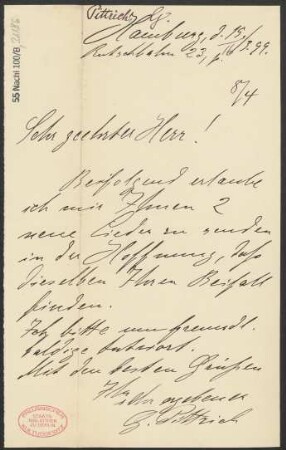 55 Nachl 100/B
Pittrich, G.
Hamburg, d. 15/
Rutschbahn 23, p. III 3. 99.
8/4
Sehr geehrter Herr!
Beifolgend erlaube
ich mir Ihnen 2
neue Lieder zu senden
in der Hoffnung, dass
dieselben Ihren Beifall
finden.
Ich bitte um freundl.
baldige Antwort.
Mit den besten Grüßen
Ihr
ergebener
G. Pittrich